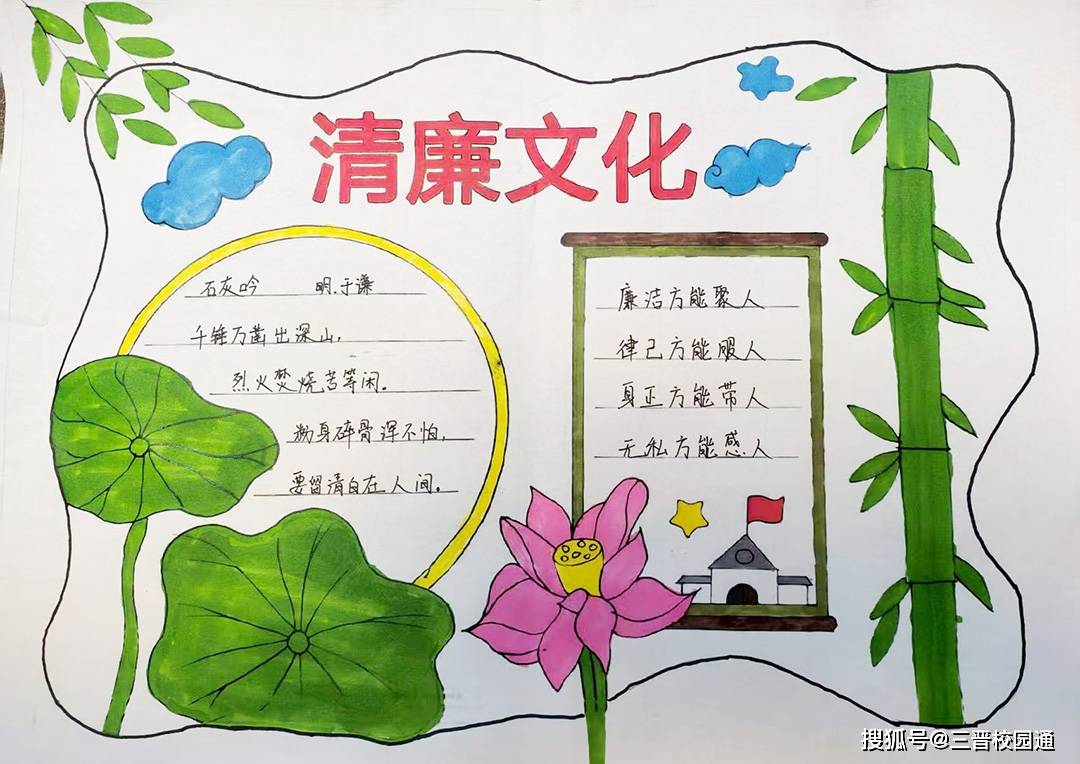 清廉文化
石灰吟 明.于谦
千锤万凿出深山,
烈火焚烧若等闲。
粉身碎骨浑不怕,
要留清白在人间。
廉洁方能聚人
律己方能服人
身正方能带人
无私方能感人
搜狐号@三晋校园通